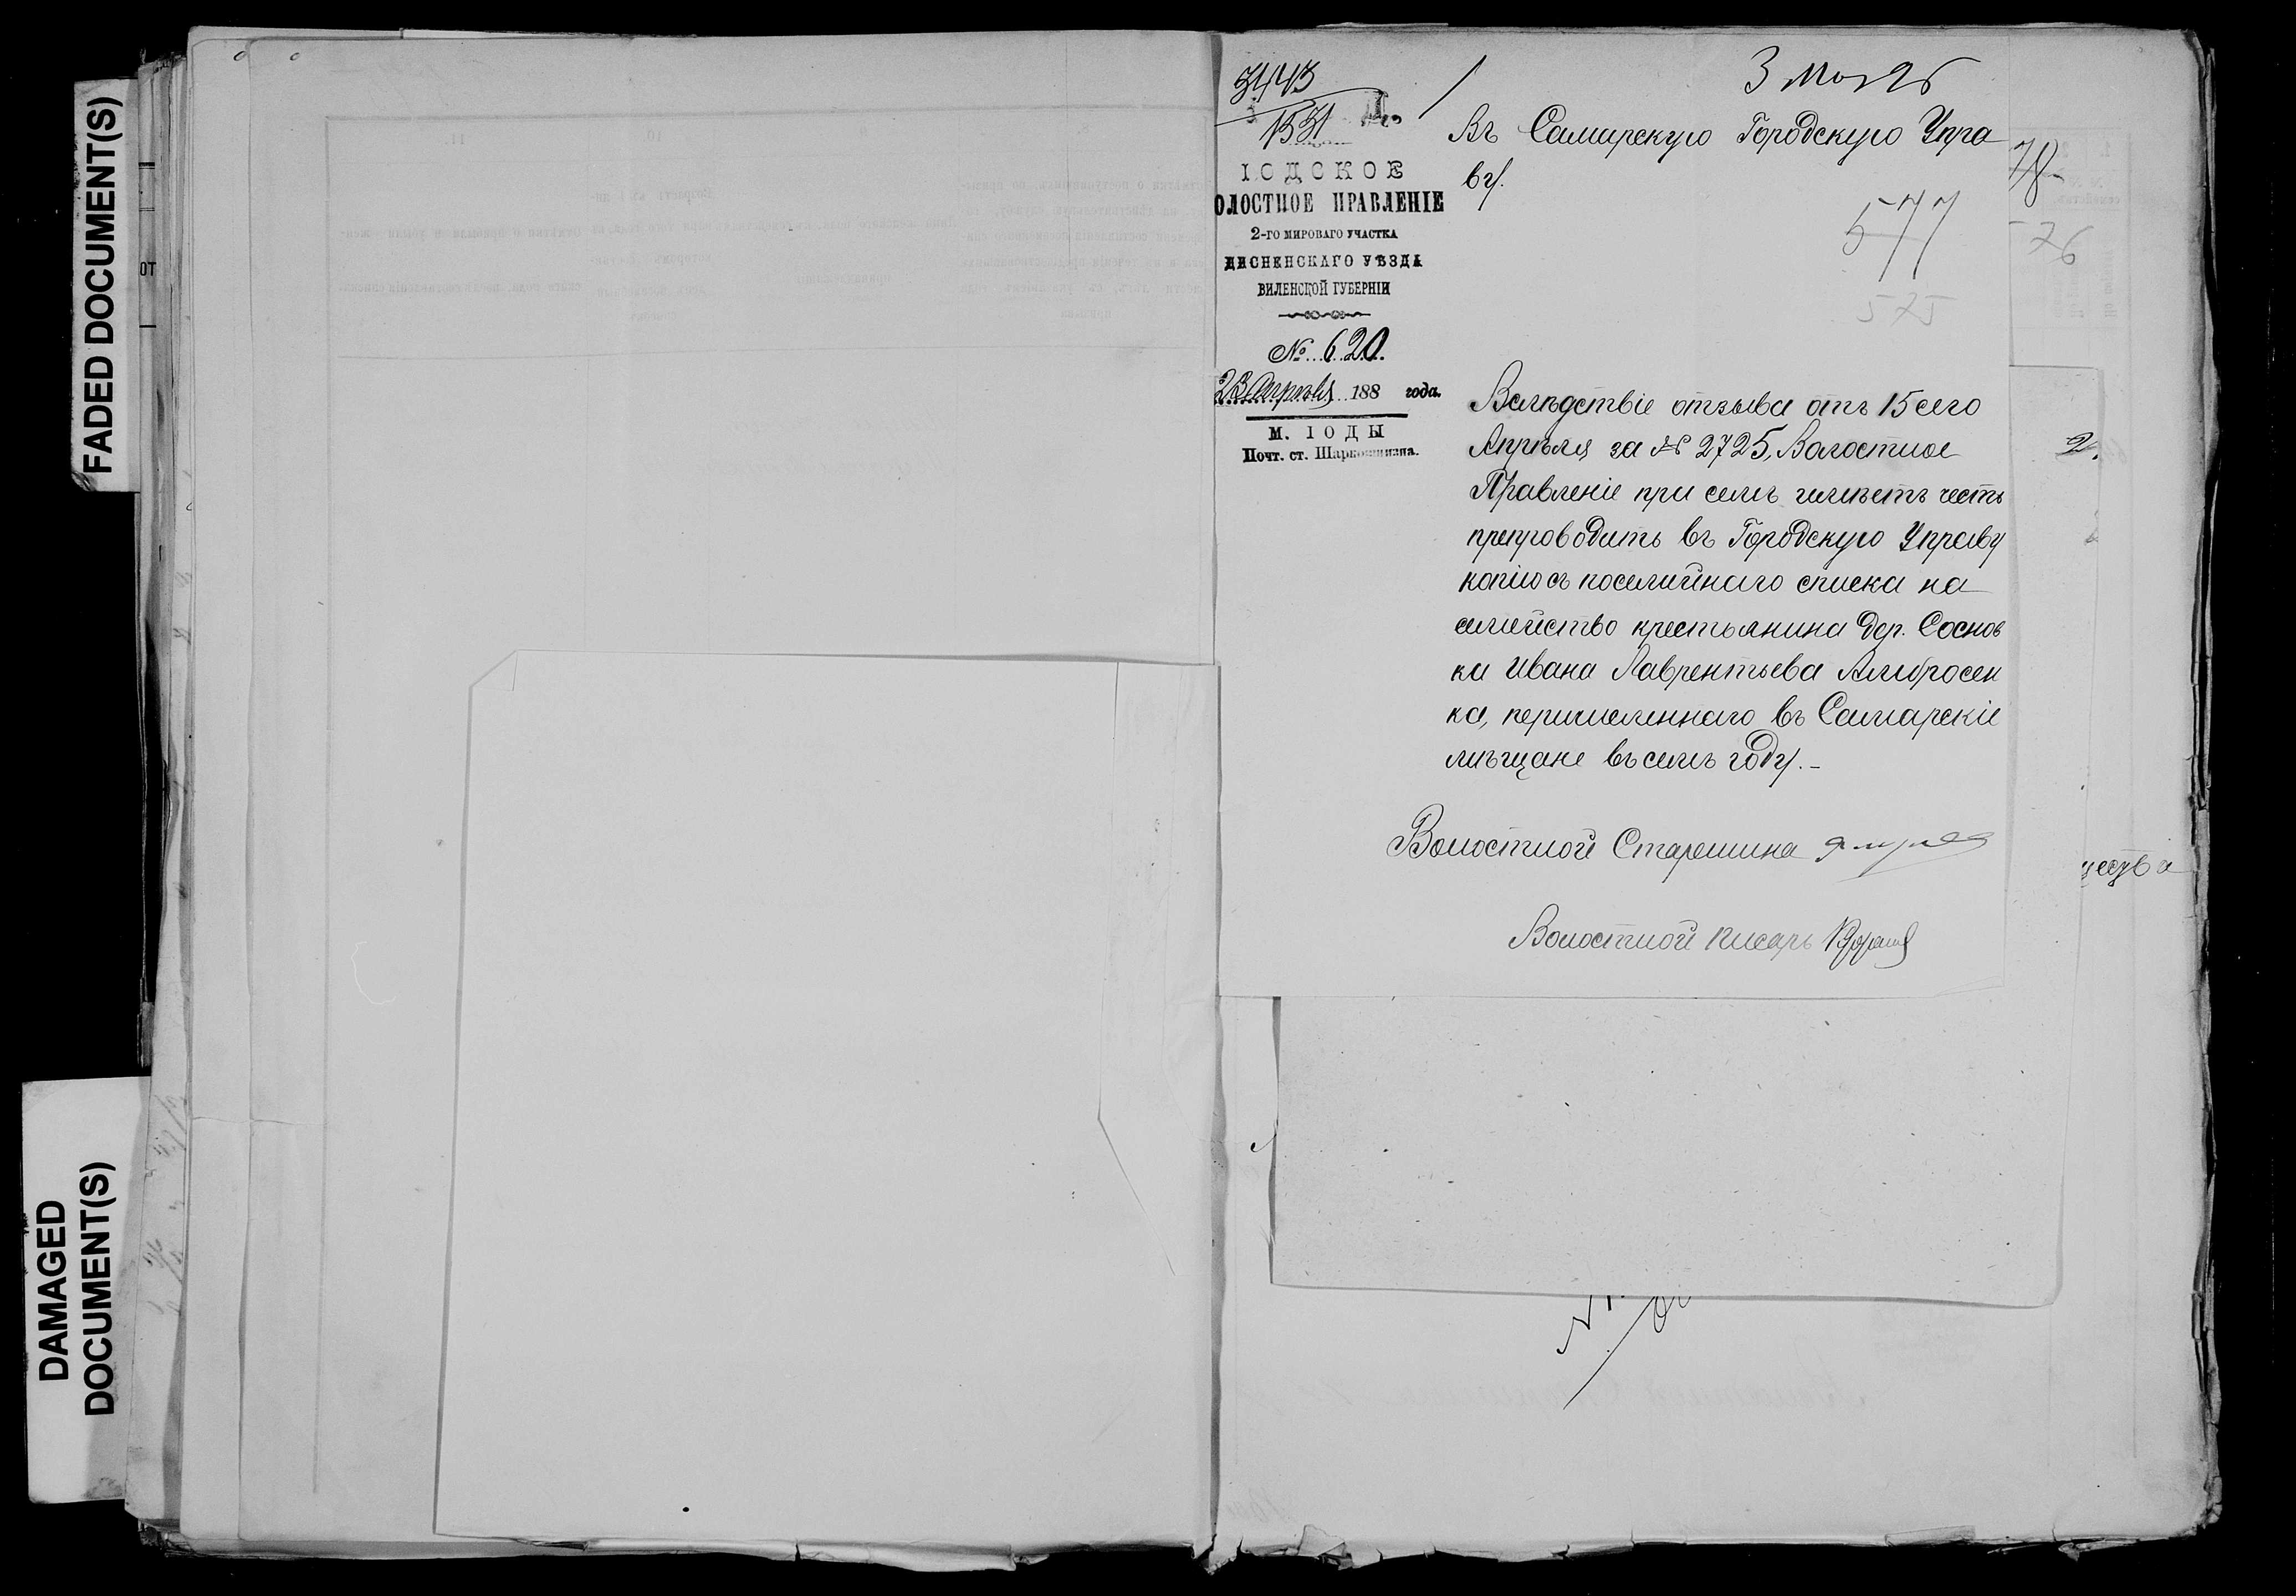 FADED DOCUMENT(S)
DAMAGED
DOCUMENT(S)
ОТ
3443
1531
3 Мая
Въ Самарскую Городскую Упра
ву.
78
577
76
575
ІОДСКОЕ
ОЛОСТНОЕ ПРАВЛЕНІЕ
2-ГО МИРОВАГО УЧАСТКА
ДИСНЕНСКАГО УѢЗДА
ВИЛЕНСКОЙ ГУБЕРНІИ
№ 620.
23 Апрѣля 188 года.
М. ІОДЫ
Почт. ст. Шарковщизна.
Вслѣдствіе отзыва отъ 15 сего
Апрѣля за № 2725, Волостное
Правленіе при семъ имѣетъ честь
препроводить въ Городскую Управу
копію съ посемейнаго списка на
семейство крестьянина дер. Соснов
ки Ивана Лаврентьева Амбросен
ка, перечисленнаго въ Самарскіе
мѣщане въ семъ году.-
Волостной Старшина
Волостной писарь
2.
щества